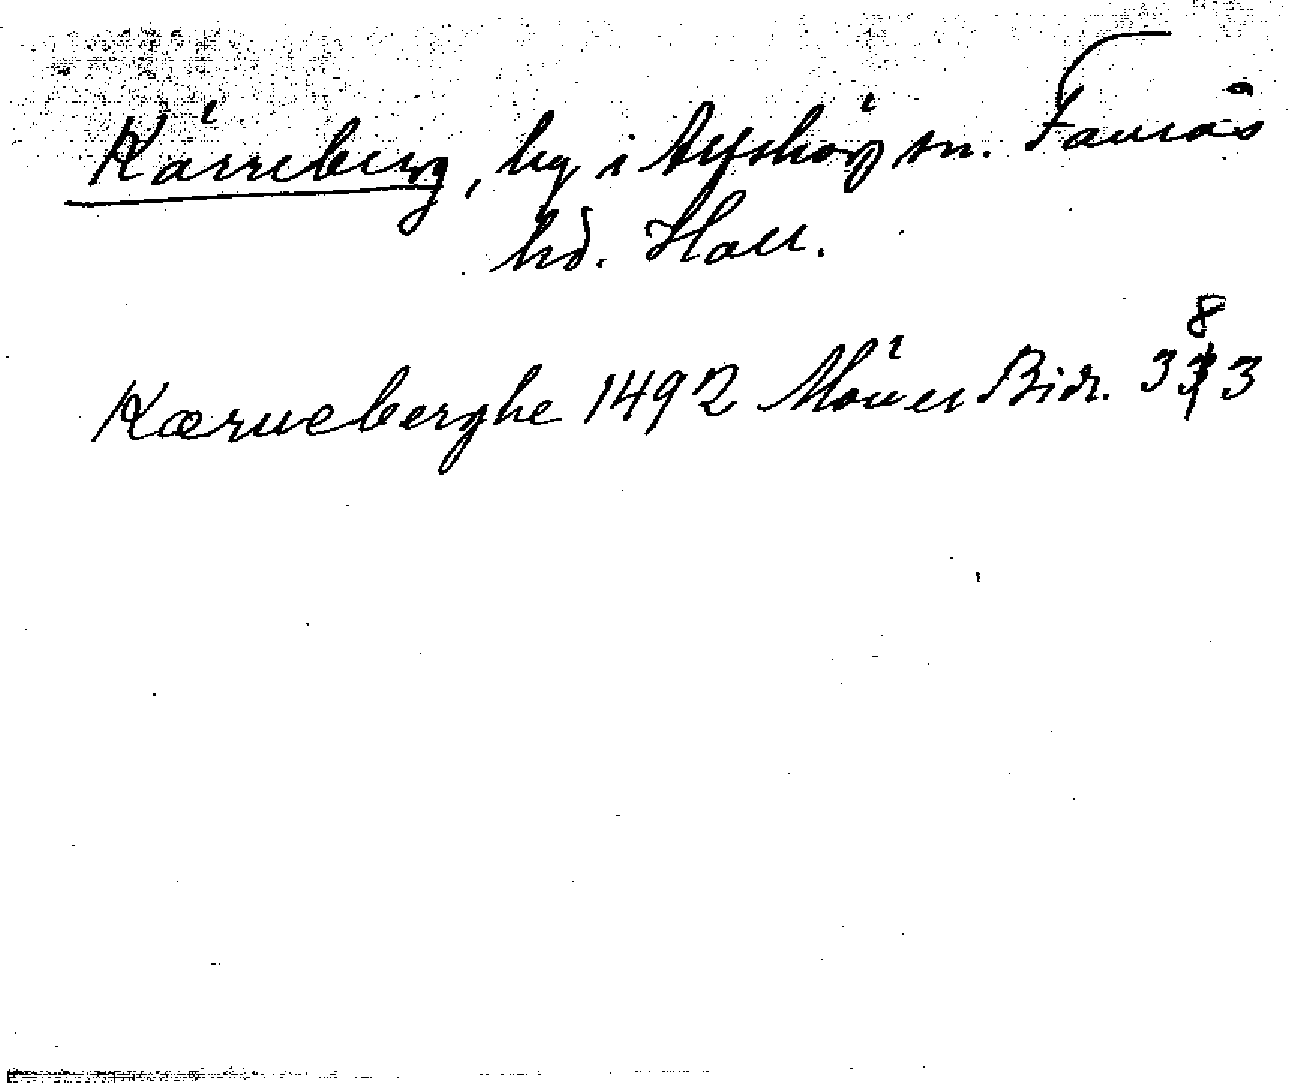 Kärreberg, by i Alfshög sn. Faurås
hd. Hall.
Kærreberghe 1492 Möller Bidr. 383